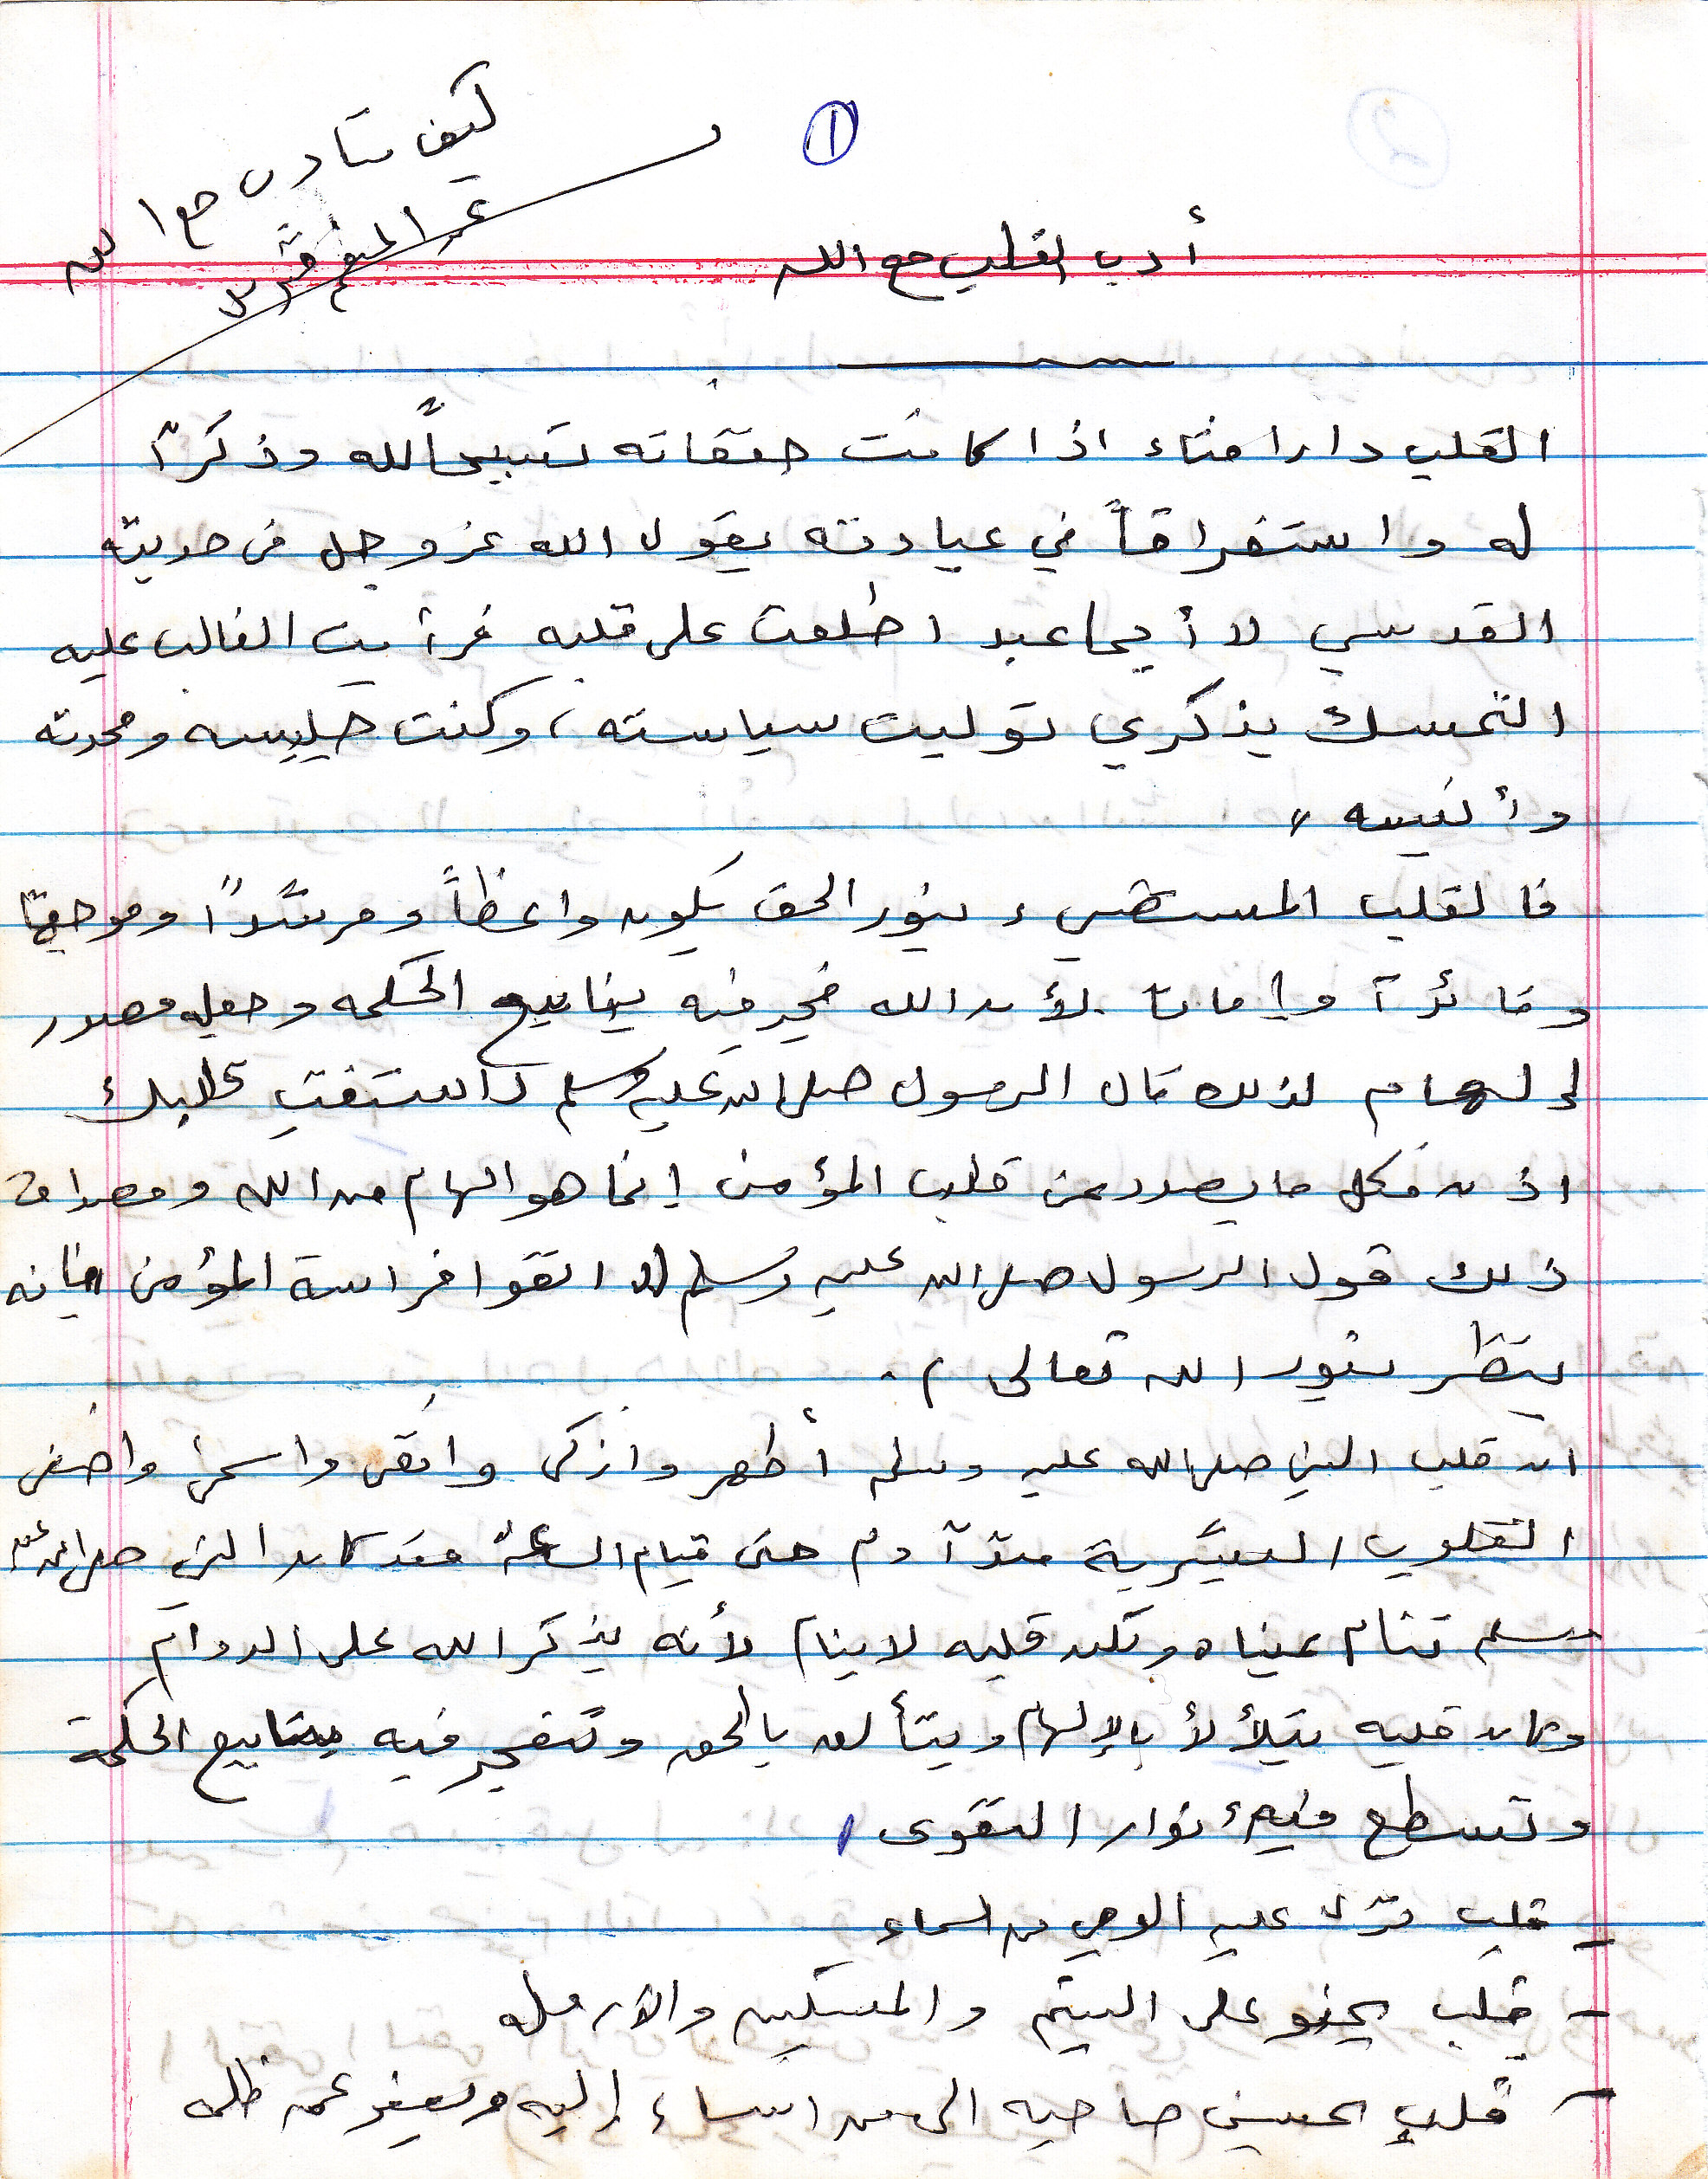 ①
كيف نتأدب مع الله
أدب القلب مع الله
القلب دار افتاء اذا كانت خفقاته تسبيحاً لله وذكراً
له واستغراقاً في عبادته يقول الله عز وجل في حديثه
القدسي لا أيما عبد اطلعت على قلبه فرأيت الغالب عليه
التمسك بذكري توليت سياسته، وكنت جليسه ومحدثه
وأنيسه "
فالقلب المستضيء بنور الحق يكون واعظاً ومرشداً وموجهاً
وقائداً وإماماً لأن الله فجر فيه ينابيع الحكمه وجعله مصدر
لإلهام لذلك قال الرسول صلى الله عليه وسلم (( استفتِ قلبك
اذن فكل ما يصدر عن قلب المؤمن إنما هو الهام من الله ومصداق
ذلك قول الرسول صلى الله عليه وسلم (( اتقوا فراسة المؤمن فإنه
ينظر بنور الله تعالى ) .
ان قلب النبي صلى الله عليه وسلم أطهر وازكى وانقى واسمى واصفى
القلوب البشرية منذ آدم حتى قيام الساعة فقد كان النبي صلى الله عليه
وسلم تنام عيناه ولكن قلبه لا ينام لأنه يذكر الله على الدوام
وكان قلبه يتلألأ بالإلهام ويتألق بالحق وتتفجر فيه ينابيع الحكمة
وتسطع فيه أنوار التقوى
- قلب تنزل عليه الوحي من السماء
- قلب يحنو على اليتيم والمسكين والأرمله
- قلب يحسن صاحبه الى من اساء إليه ويعفو عمن ظلمه